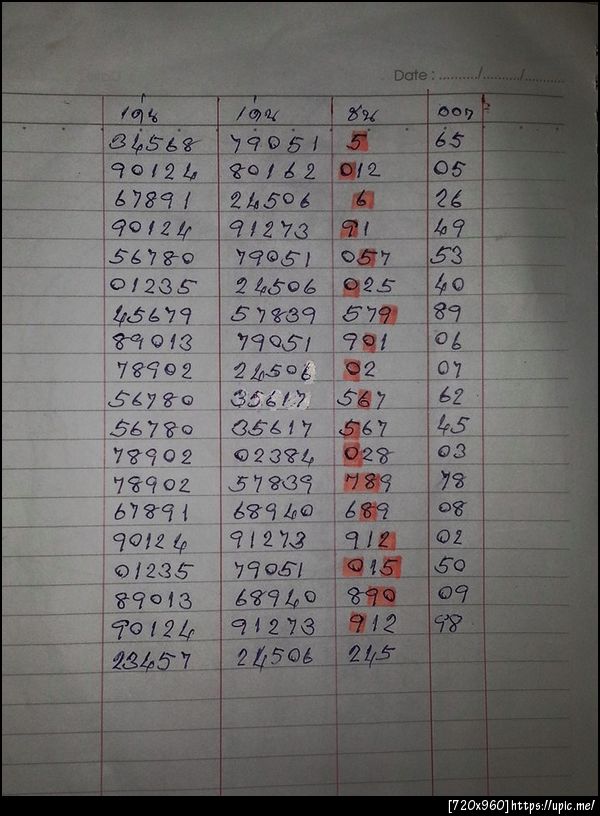 Date : ........../........../..........
เด่น เด่น ชน ออก
34568 79051 5 65
90124 80162 012 05
67891 24506 6 26
90124 91273 91 49
56780 79051 057 53
01235 24506 025 40
45679 57839 579 89
89013 79051 901 06
78902 24506 02 07
56780 35617 567 62
56780 35617 567 45
78902 02384 028 03
78902 57839 789 78
67891 68940 689 08
90124 91273 912 02
01235 79051 015 50
89013 68940 890 09
90124 91273 912 98
23457 24506 245
[720x960]https://upic.me/